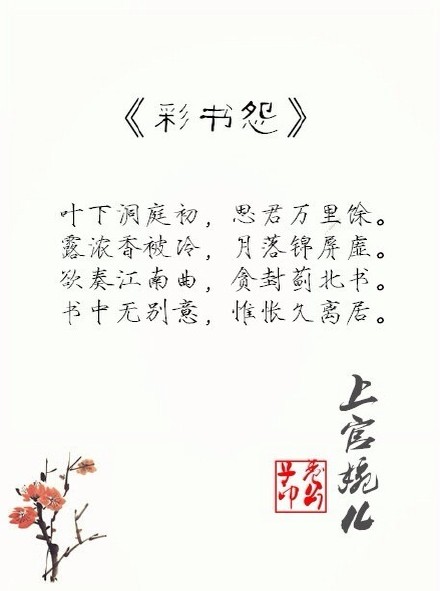 《彩书怨》
叶下洞庭初，思君万里馀。
露浓香被冷，月落锦屏虚。
欲奏江南曲，贪封蓟北书。
书中无别意，惟怅久离居。
上官婉儿